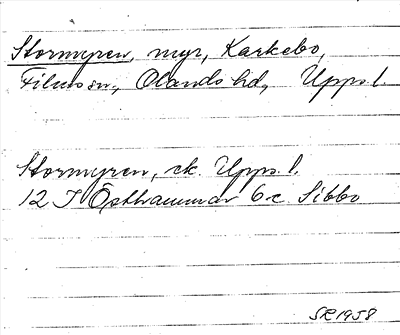 Stormyren, myr, Karkebo,
Films sn, Olands hd, Uppl.
Stormyren, ek. Uppl.
12 I Östhammar 6c Sibbo
SR 1958